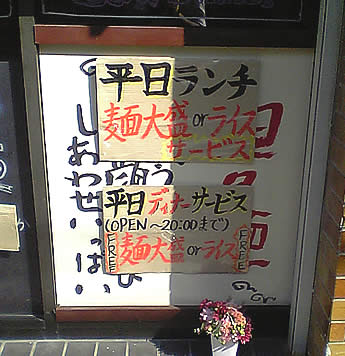 平日ランチ
麺大盛orライス
サービス
平日ディナーサービス
(OPEN～20:00まで)
FREE 麺大盛orライス FREE
しあわせいっぱい